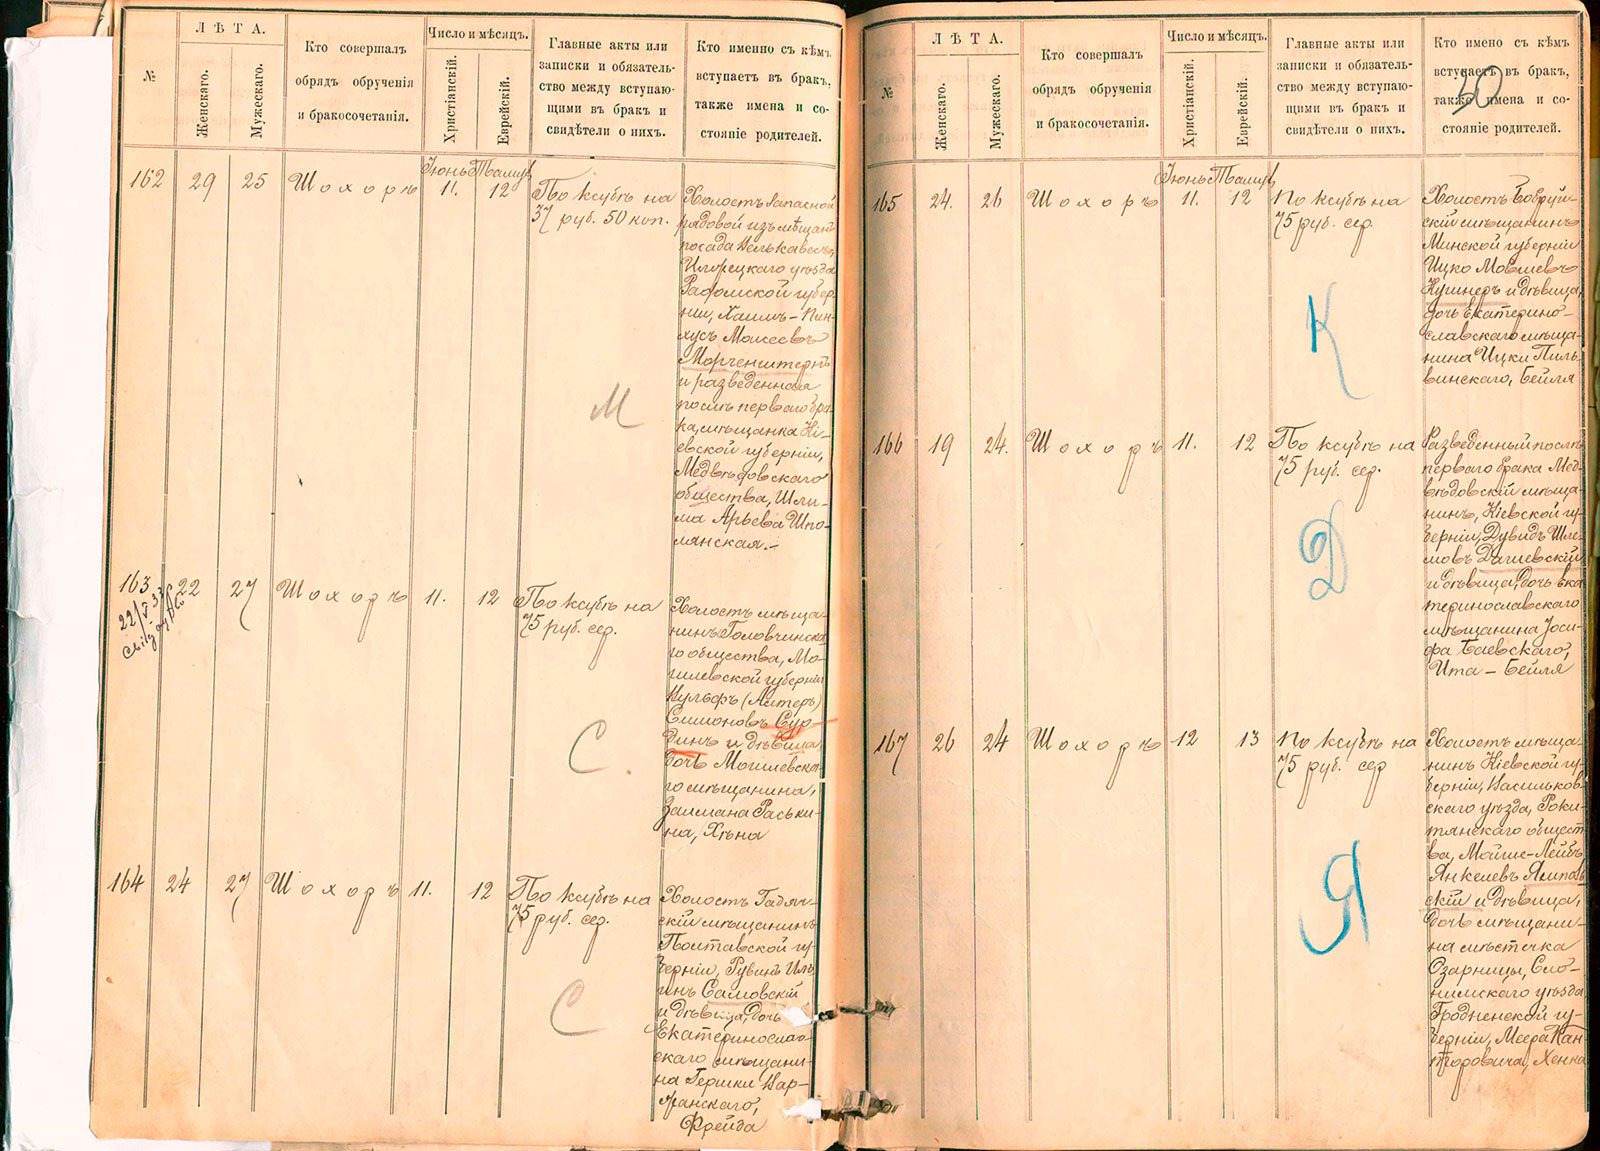 №
ЛѢТА.
Женскаго.
Мужескаго.
Кто совершалъ
обрядъ обрученія
и бракосочетанія.
Число и мѣсяцъ.
Христіанскій.
Еврейскій.
Главные акты или
записки и обязатель-
ство между вступаю-
щими въ бракъ и
свидѣтели о нихъ.
Кто именно съ кѣмъ
вступаетъ въ бракъ,
также имена и со-
стояніе родителей.
Іюнь Тамуз
162 29 25 Шохоръ 11. 12
По ксубѣ на
37 руб. 50 коп.
Холостъ запасной
рядовой изъ мѣщанъ
посада
уѣзда
Радомской губер-
ніи, Хаимъ-Пин-
хусъ Мошеевъ
Моргенштернъ
и разведенная
послѣ перваго бра-
ка, мѣщанка Кі-
евской губерніи,
Медвѣдовскаго
общества, Шли-
ма Арьева Шпо-
лянская.-
М
163 22 27 Шохоръ 11. 12
22/V 33
По ксубѣ на
75 руб. сер.
Холостъ мѣща-
нинъ Головчинска-
го общества, Мо-
гилевской губерніи
Вульфъ
Симоновъ Сур-
динъ и дѣвица
дочь Могилевска-
го мѣщанина,
Залмана Раськи-
на, Хѣна
С
164 24 27 Шохоръ 11. 12
По ксубѣ на
75 руб. сер.
Холостъ Гадяч-
скій мѣщанинъ
Полтавской гу-
берніи, Рувинъ Иль-
инъ Самовскій
и дѣвица, дочь
Екатеринослав-
скаго мѣщани-
на Гершки Вар-
шавскаго,
Фрейда
С
№
ЛѢТА.
Женскаго.
Мужескаго.
Кто совершалъ
обрядъ обрученія
и бракосочетанія.
Число и мѣсяцъ.
Христіанскій.
Еврейскій.
Главные акты или
записки и обязатель-
ство между вступаю-
щими въ бракъ и
свидѣтели о нихъ.
Кто имено съ кѣмъ
вступаетъ въ бракъ,
также имена и со-
стояніе родителей.
50
Іюнь Тамуз
165 24. 26 Шохоръ 11. 12
По ксубѣ на
75 руб. сер.
Холостъ Бобруй-
скій мѣщанинъ
Минской губерніи
Ицко Мовшевъ
Кушнеръ и дѣвица,
дочь Екатерино-
славскаго мѣща-
нина Ицки Пиль-
винскаго, Бейля
К
166 19 24. Шохоръ 11. 12
По ксубѣ на
75 руб. сер.
Разведенный послѣ
перваго брака Мед-
вѣдовскій мѣща-
нинъ, Кіевской гу-
берніи, Дувидъ Шле-
мовъ Дашевскій
и дѣвица, дочь Ека-
теринославскаго
мѣщанина Іоси-
фа Баевскаго,
Ита-Бейля
Д
167 26 24 Шохоръ 12 13
По ксубѣ на
75 руб. сер
Холостъ мѣща-
нинъ Кіевской гу-
берніи, Васильков-
скаго уѣзда, Роки-
тянскаго общест-
ва, Мойше-Лейбъ
Янкелевъ Ямполь-
скій и дѣвица,
дочь мѣщани-
на мѣстечка
Озарницы, Сло-
нимскаго уѣзда
Гродненской гу-
берніи, Меера Кан-
торовича, Хенка
Я